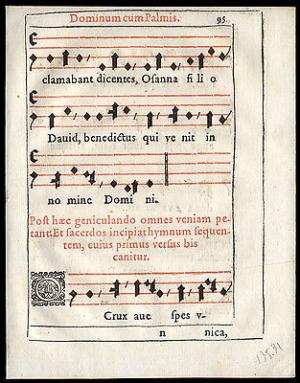 Dominum cum Palmis. 95
clamabant dicentes, Osanna fi li o
Dauid, benedictus qui ve nit in
no mine Domi ni.
Post hæc geniculando omnes veniam pe-
tant: Et sacerdos incipiat hymnum sequen-
tem, cuius primus versus bis
canitur.
Crux aue spes v-
n nica,